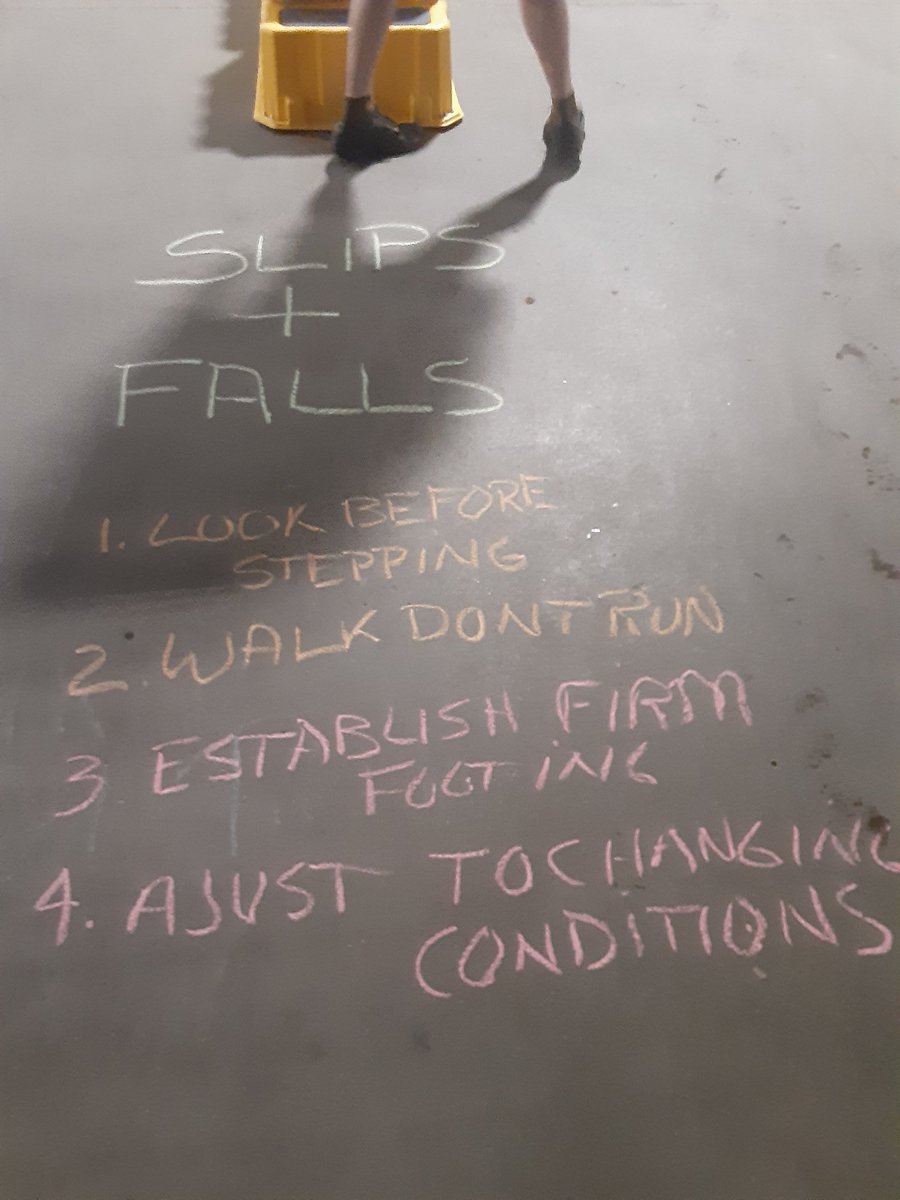 SLIPS
+
FALLS
1. LOOK BEFORE
STEPPING
2. WALK DONT RUN
3 ESTABLISH FIRM
FOOTING
4. AJUST TO CHANGING
CONDITIONS